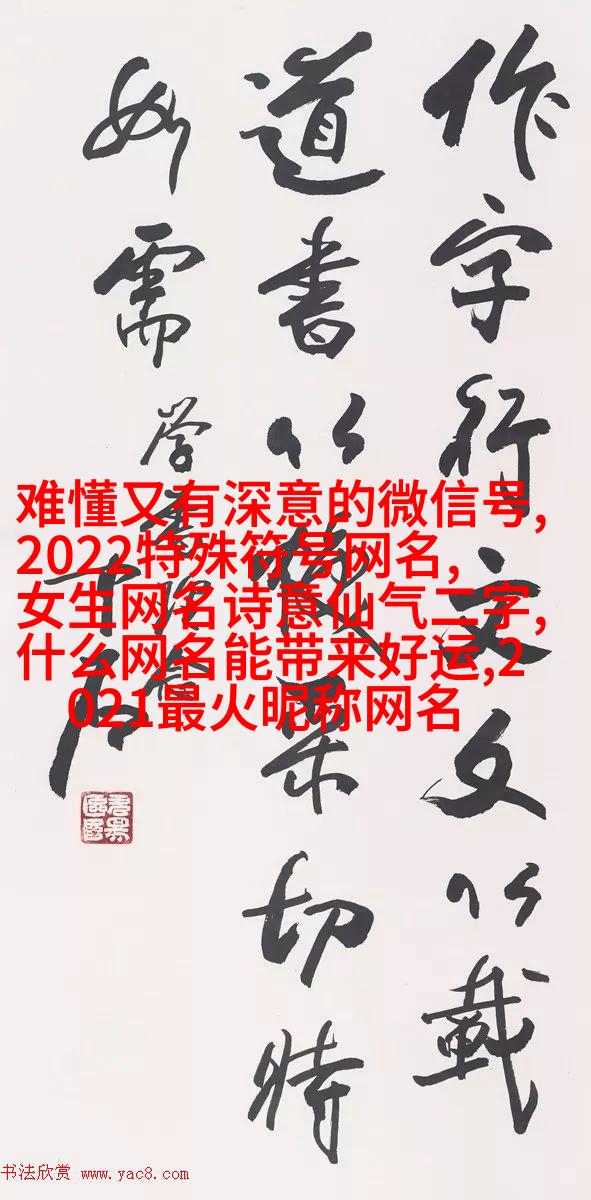 作字行文文以載
道書以采切時
如需
难懂又有深意的微信号,
2022特殊符号网名,
女生网名诗意仙气二字,
什么网名能带来好运,2
021最火昵称网名
书法欣赏 www.yac8.com